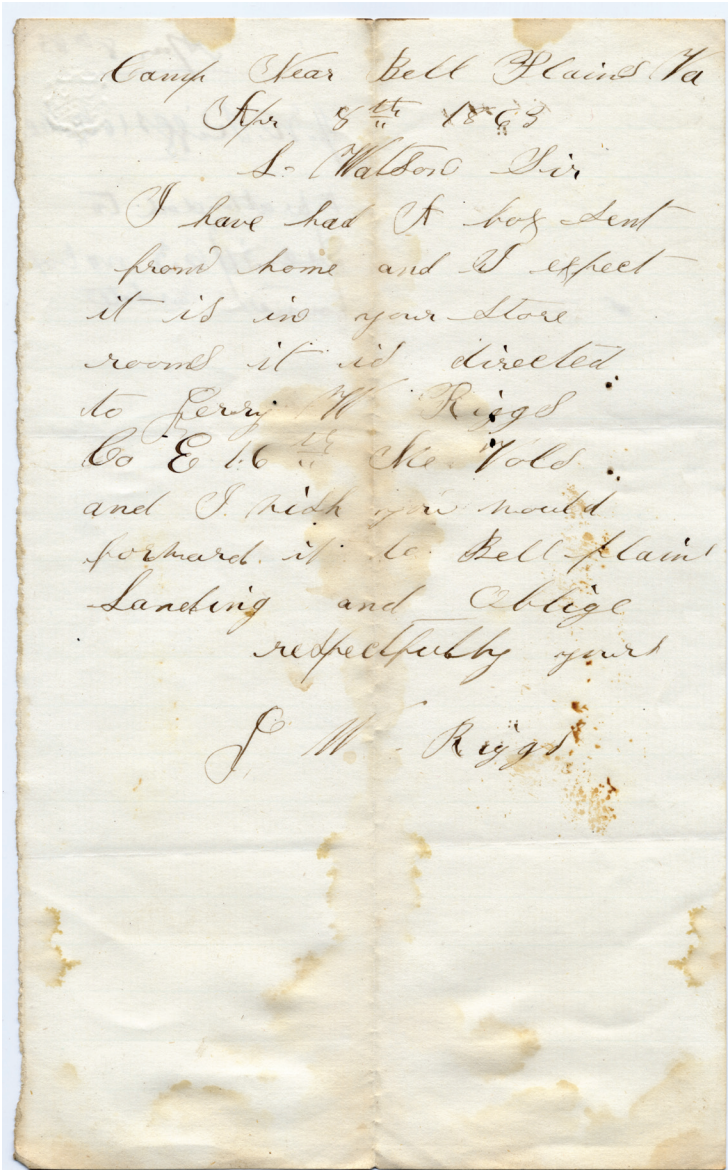 Camp Near Bell Plains Va
Apr 8th 1863
L- Watson Sir
I have had A box sent
from home and I expect
it is in your store
rooms it is directed
to Jerry W Riggs
Co E 16th Me Vols
and I wish you would
forward it to Bell plains
Landing and Oblige
respectfully yours
J. W. Riggs